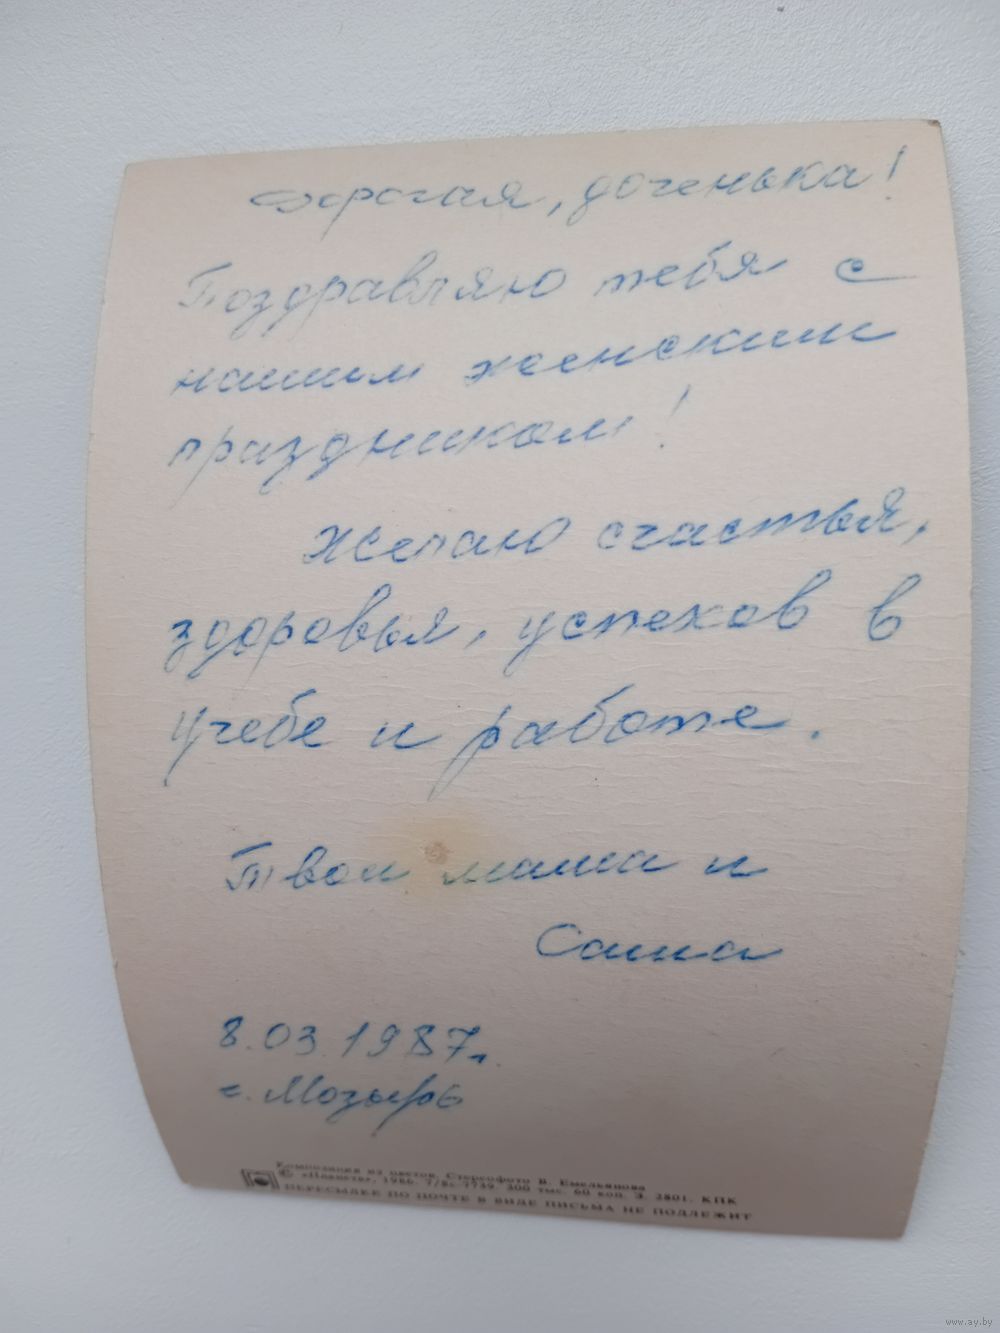 Дорогая, доченька!
Поздравляю тебя с
нашим женским
праздником!
Желаю счастья,
здоровья, успехов в
учебе и работе.
Твои мама и
Саша
8.03.1987г.
г. Мозырь
Композиция из цветов. Стереофото В. Емельянова
© «Планета», 1986. 7/8с-7739. 300 тыс. 60 коп. З. 2801. КПК
ПЕРЕСЫЛКЕ ПО ПОЧТЕ В ВИДЕ ПИСЬМА НЕ ПОДЛЕЖИТ
www.ay.by